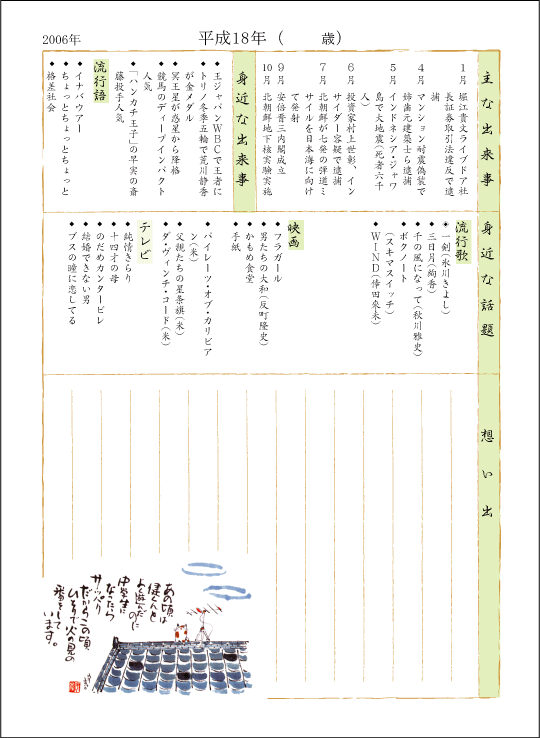 2006年
平成18年（　　歳）
主な出来事
1月 堀江貴文ライブドア社
長証券取引法違反で逮
捕
4月 マンション耐震偽装で
姉歯元建築士ら逮捕
5月 インドネシア・ジャワ
島で大地震(死者六千
人)
6月 投資家村上世彰、イン
サイダー容疑で逮捕
7月 北朝鮮が七発の弾道ミ
サイルを日本海に向け
て発射
9月 安倍晋三内閣成立
10月 北朝鮮地下核実験実施
身近な出来事
◆王ジャパンWBCで王者に
◆トリノ冬季五輪で荒川静香
が金メダル
◆冥王星が惑星から降格
◆競馬のディープインパクト
人気
◆「ハンカチ王子」の早実の斎
藤投手人気
流行語
◆イナバウアー
◆ちょっとちょっとちょっと
◆格差社会
身近な話題
流行歌
◆一剣(氷川きよし)
◆三日月(絢香)
◆千の風になって(秋川雅史)
◆ボクノート
(スキマスイッチ)
◆WIND(倖田來未)
映画
◆フラガール
◆男たちの大和(反町隆史)
◆かもめ食堂
◆手紙
◆パイレーツ・オブ・カリビア
ン(米)
◆父親たちの星条旗(米)
◆ダ・ヴィンチ・コード(米)
テレビ
◆純情きらり
◆十四才の母
◆のだめカンタービレ
◆結婚できない男
◆ブスの瞳に恋してる
想い出
あの頃は
健くんと
よく遊んだ
のに
中学生に
なったら
サッパリ
だからこの頃
ひとりで火の見の
番をして
います。